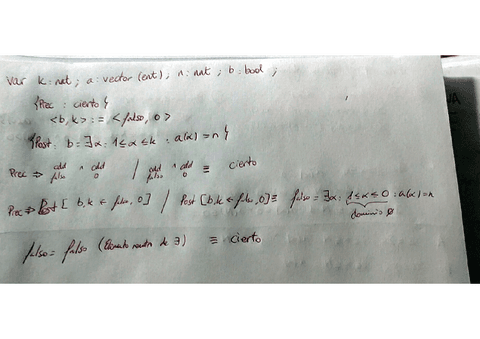 var k: nat; a: vector (ent); n: nat; b: bool;
{Prec: cierto}
<b, k> := <falso, 0>
{Post: b = ∃α: 1≤α≤k : a(α) = n}
Prec ⇒ def falso ∧ def 0 / def falso ∧ def 0 ≡ cierto
Prec ⇒ Post [b, k ← falso, 0] / Post [b, k ← falso, 0] ≡ falso = ∃α: 1≤α≤0 : a(α) = n
dominio ∅
falso = falso (Elemento neutro de ∃) ≡ cierto